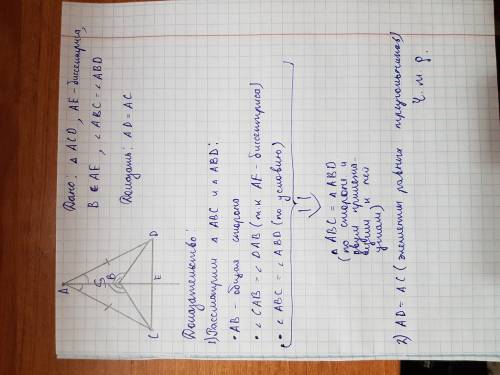 Дано: △ ACD, AE - биссектриса,
B ∈ AE, ∠ ABC = ∠ ABD
Доказать: AD = AC
A
B
C
E
D
Доказательство:
1) Рассмотрим △ ABC и △ ABD:
• AB - общая сторона
• ∠ CAB = ∠ DAB (т.к AE - биссектриса)
• ∠ ABC = ∠ ABD (по условию)
△ ABC = △ ABD
(по стороне и
двум прилежа-
щим к ней
углам)
2) AD = AC (элементы равных треугольников)
Ч. т. д.